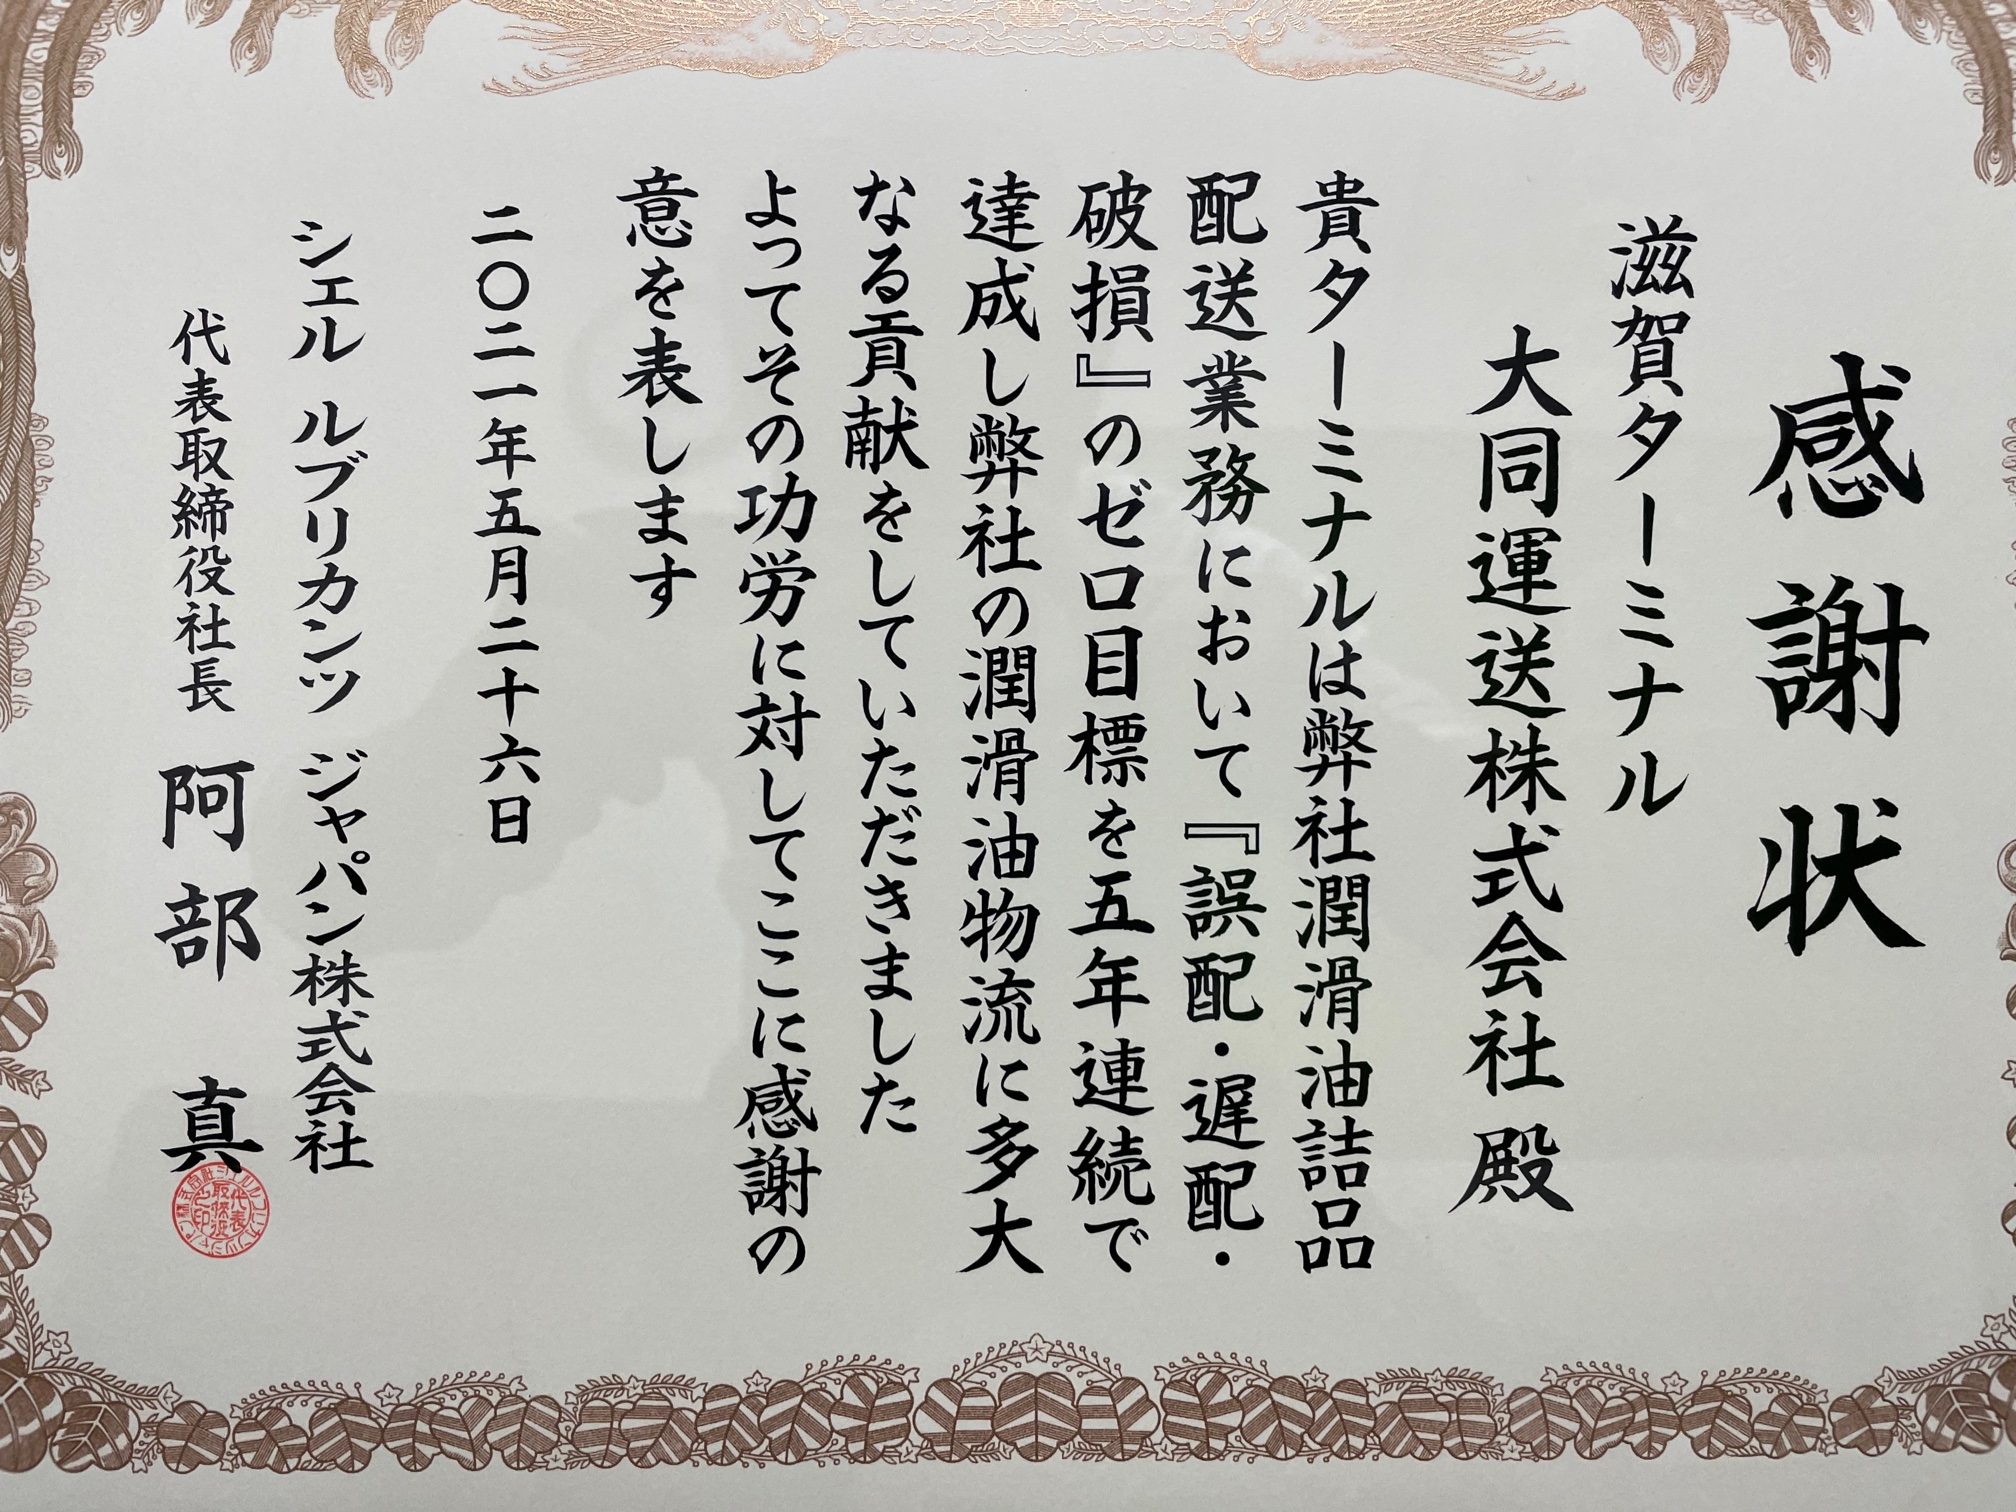 感謝状
滋賀ターミナル
大同運送株式会社 殿
貴ターミナルは弊社潤滑油詰品
配送業務において『誤配・遅配・
破損』のゼロ目標を五年連続で
達成し弊社の潤滑油物流に多大
なる貢献をしていただきました
よってその功労に対してここに感謝の
意を表します
二〇二一年五月二十六日
シェル ルブリカンツ ジャパン株式会社
代表取締役社長 阿部 真